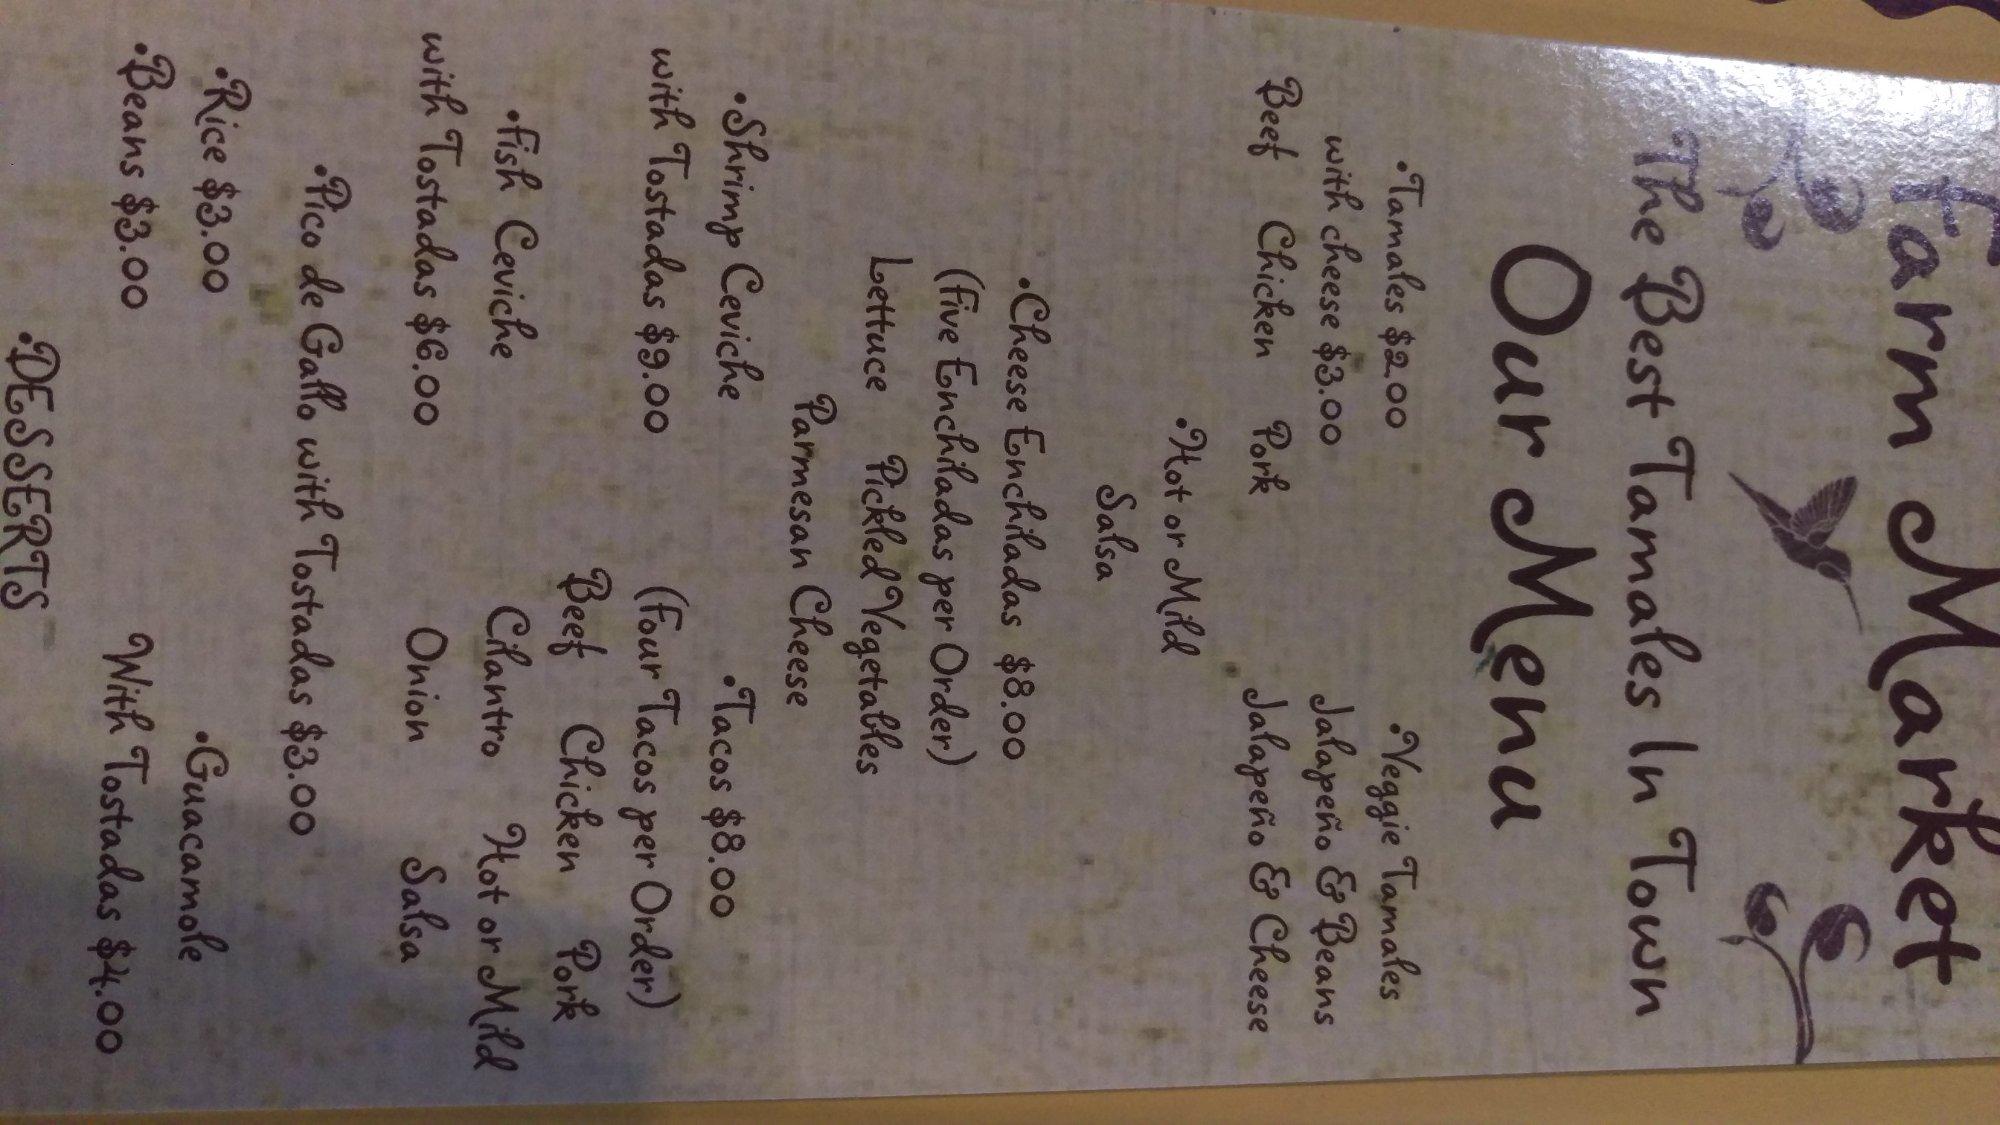 Farm Market
The Best Tamales In Town
Our Menu
•Tamales $2.00
with cheese $3.00
Beef Chicken Pork
•Veggie Tamales
Jalapeño & Beans
Jalapeño & Cheese
•Hot or Mild
Salsa
•Cheese Enchiladas $8.00
(Five Enchiladas per Order)
Lettuce Pickled Vegetables
Parmesan Cheese
•Shrimp Ceviche
with Tostadas $9.00
•Fish Ceviche
with Tostadas $6.00
•Tacos $8.00
(Four Tacos per Order)
Beef Chicken Pork
Cilantro Hot or Mild
Onion Salsa
•Pico de Gallo with Tostadas $3.00
•Rice $3.00
•Beans $3.00
•Guacamole
With Tostadas $4.00
•DESSERTS